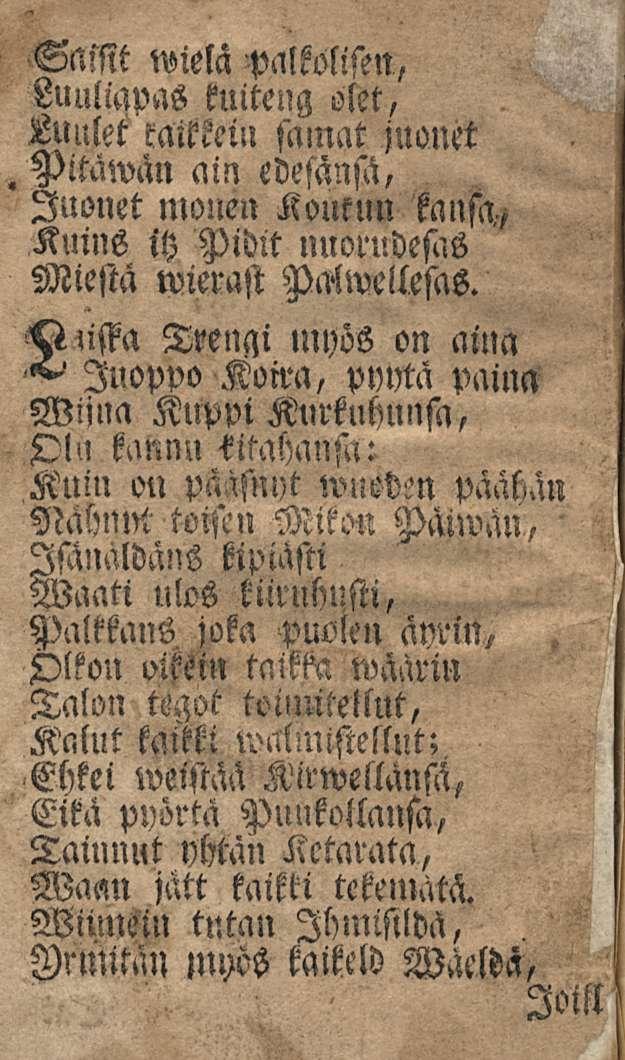 Saisit wielä palkolisen,
Luuliapas kuiteng olet,
Luulet kaikkein samat juonet
Pitäwän ain edesänsä,
Juonet monen Koukun kansa,
Kuins itz Pidit nuorudesas
Miestä wierast Palwellesas.
Laiska Trengi myös on aina
Juoppo Koira, pyytä paina
Wijna Kuppi Kurkuhunsa,
Olu kannu kitahansa:
Kuin on pääsnyt wuoden päähän
Nähnyt toisen Mikon Päiwän,
Isänäldäns kipiästi
Waati ulos kiiruhusti,
Palkkans joka puolen äyrin,
Olkon oikein taikka wäärin
Talon tegot toimitellut,
Kalut kaikki walmistellut;
Ehkei weistää Kirwellänsä,
Eikä pyörtä Puukollansa,
Tainnut yhtän Ketarata,
Waan jätt kaikki tekemätä.
Wiimein tutan Ihmisildä,
Yrmitän myös kaikeld Wäeldä,
Joill